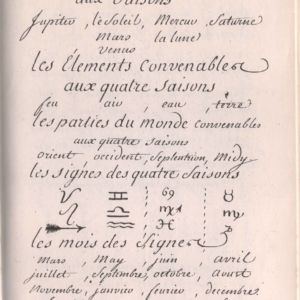 aux saisons
Jupiter, le Soleil, Mercur, Saturne
Mars la lune
venus
les Élements convenables
aux quatre saisons
feu air, eau, terre
les parties du monde convenables
aux quatre saisons
orient, occident, Septentrion, Midy
les signes des quatre saisons
♈ ♊ 69 ♉
♌ ♎ ♍ ♏
♐ ♒ ♓ ♑
les mois des Signes
mars, May, juin, avril
juillet, Septembre, octobre, aoust
Novembre, janvier, fevrier, decembre